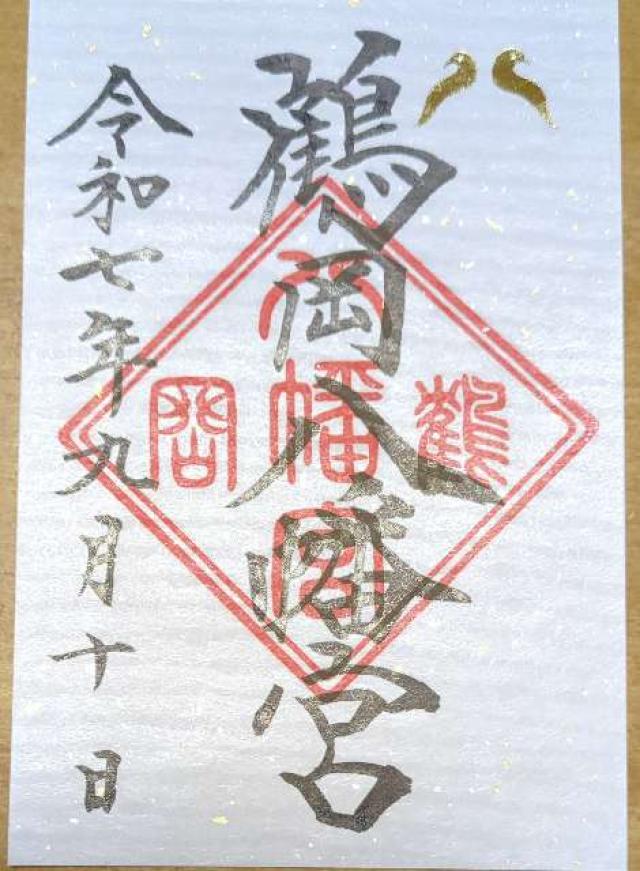 鶴岡八幡宮
鶴
八幡宮
岡
令和七年九月十日